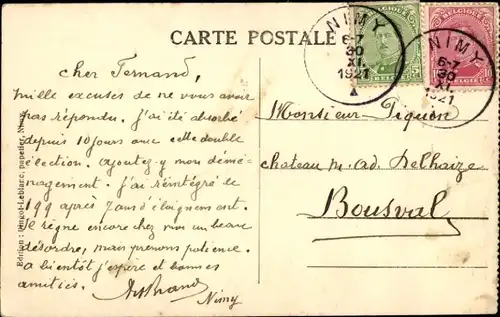 CARTE POSTALE
NIMY
6-7
30
XI
1921
NIMY
6-7
30
XI
1921
BELGIQUE
5
BELGIQUE
10
cher Fernand,
Mille excuses de ne vous avoir
pas répondu. J'ai été absorbé
depuis 10 jours avec cette double
élection. Ajoutez-y mon démé-
nagement. J'ai réintégré le
199 après 7 ans d'éloignement.
Il règne encore chez moi un beau
désordre, mais prenons patience.
A bientôt j'espère et bonnes
amitiés.
Nimy
Monsieur Piquon
chateau M. Ad. Delhaize
Bousval
Edition : Leblanc, papetier,